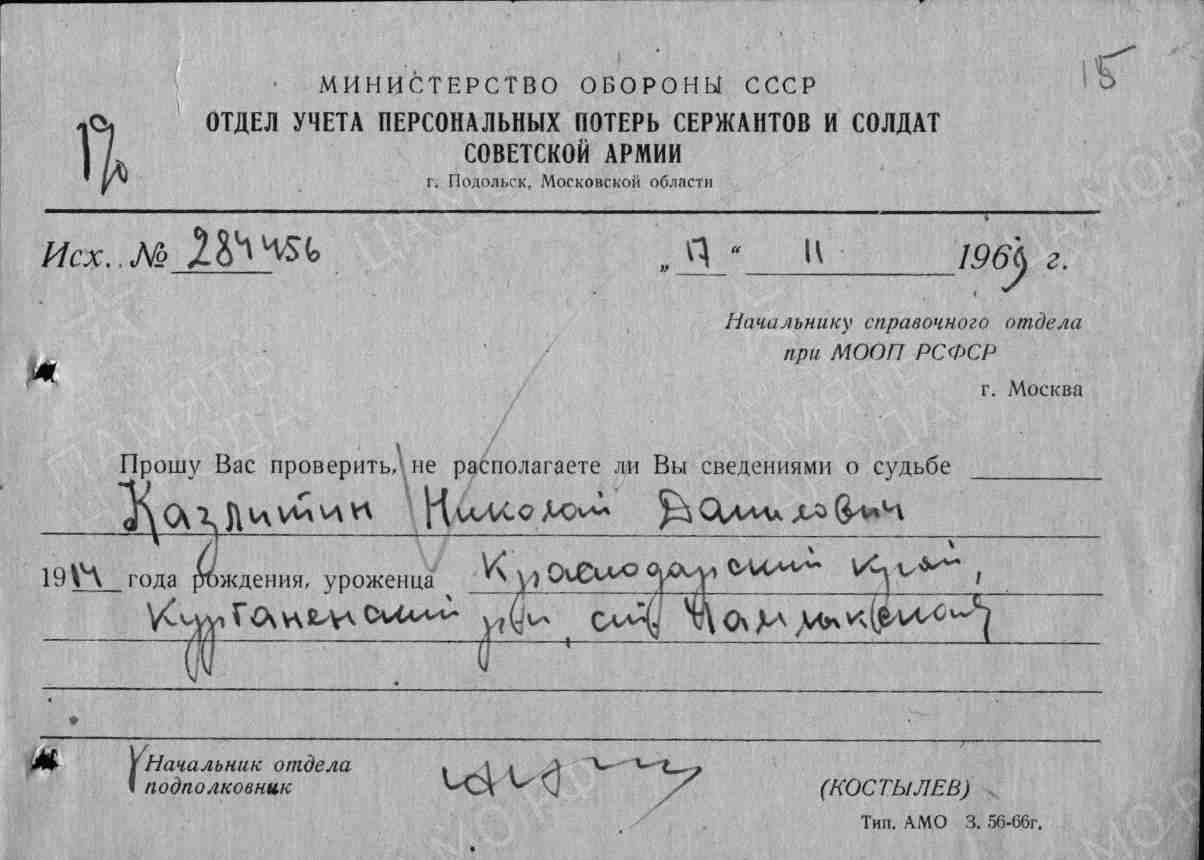 15
МИНИСТЕРСТВО ОБОРОНЫ СССР
ОТДЕЛ УЧЕТА ПЕРСОНАЛЬНЫХ ПОТЕРЬ СЕРЖАНТОВ И СОЛДАТ
СОВЕТСКОЙ АРМИИ
г. Подольск, Московской области
Исх. № 284456 „17“ 11 1969 г.
Начальнику справочного отдела
при МООП РСФСР
г. Москва
Прошу Вас проверить, не располагаете ли Вы сведениями о судьбе
Казлитин Николай Данилович
1914 года рождения, уроженца Краснодарский край,
Курганенский р-н, ст.
Начальник отдела
подполковник (КОСТЫЛЕВ)
Тип. АМО З. 56-66г.